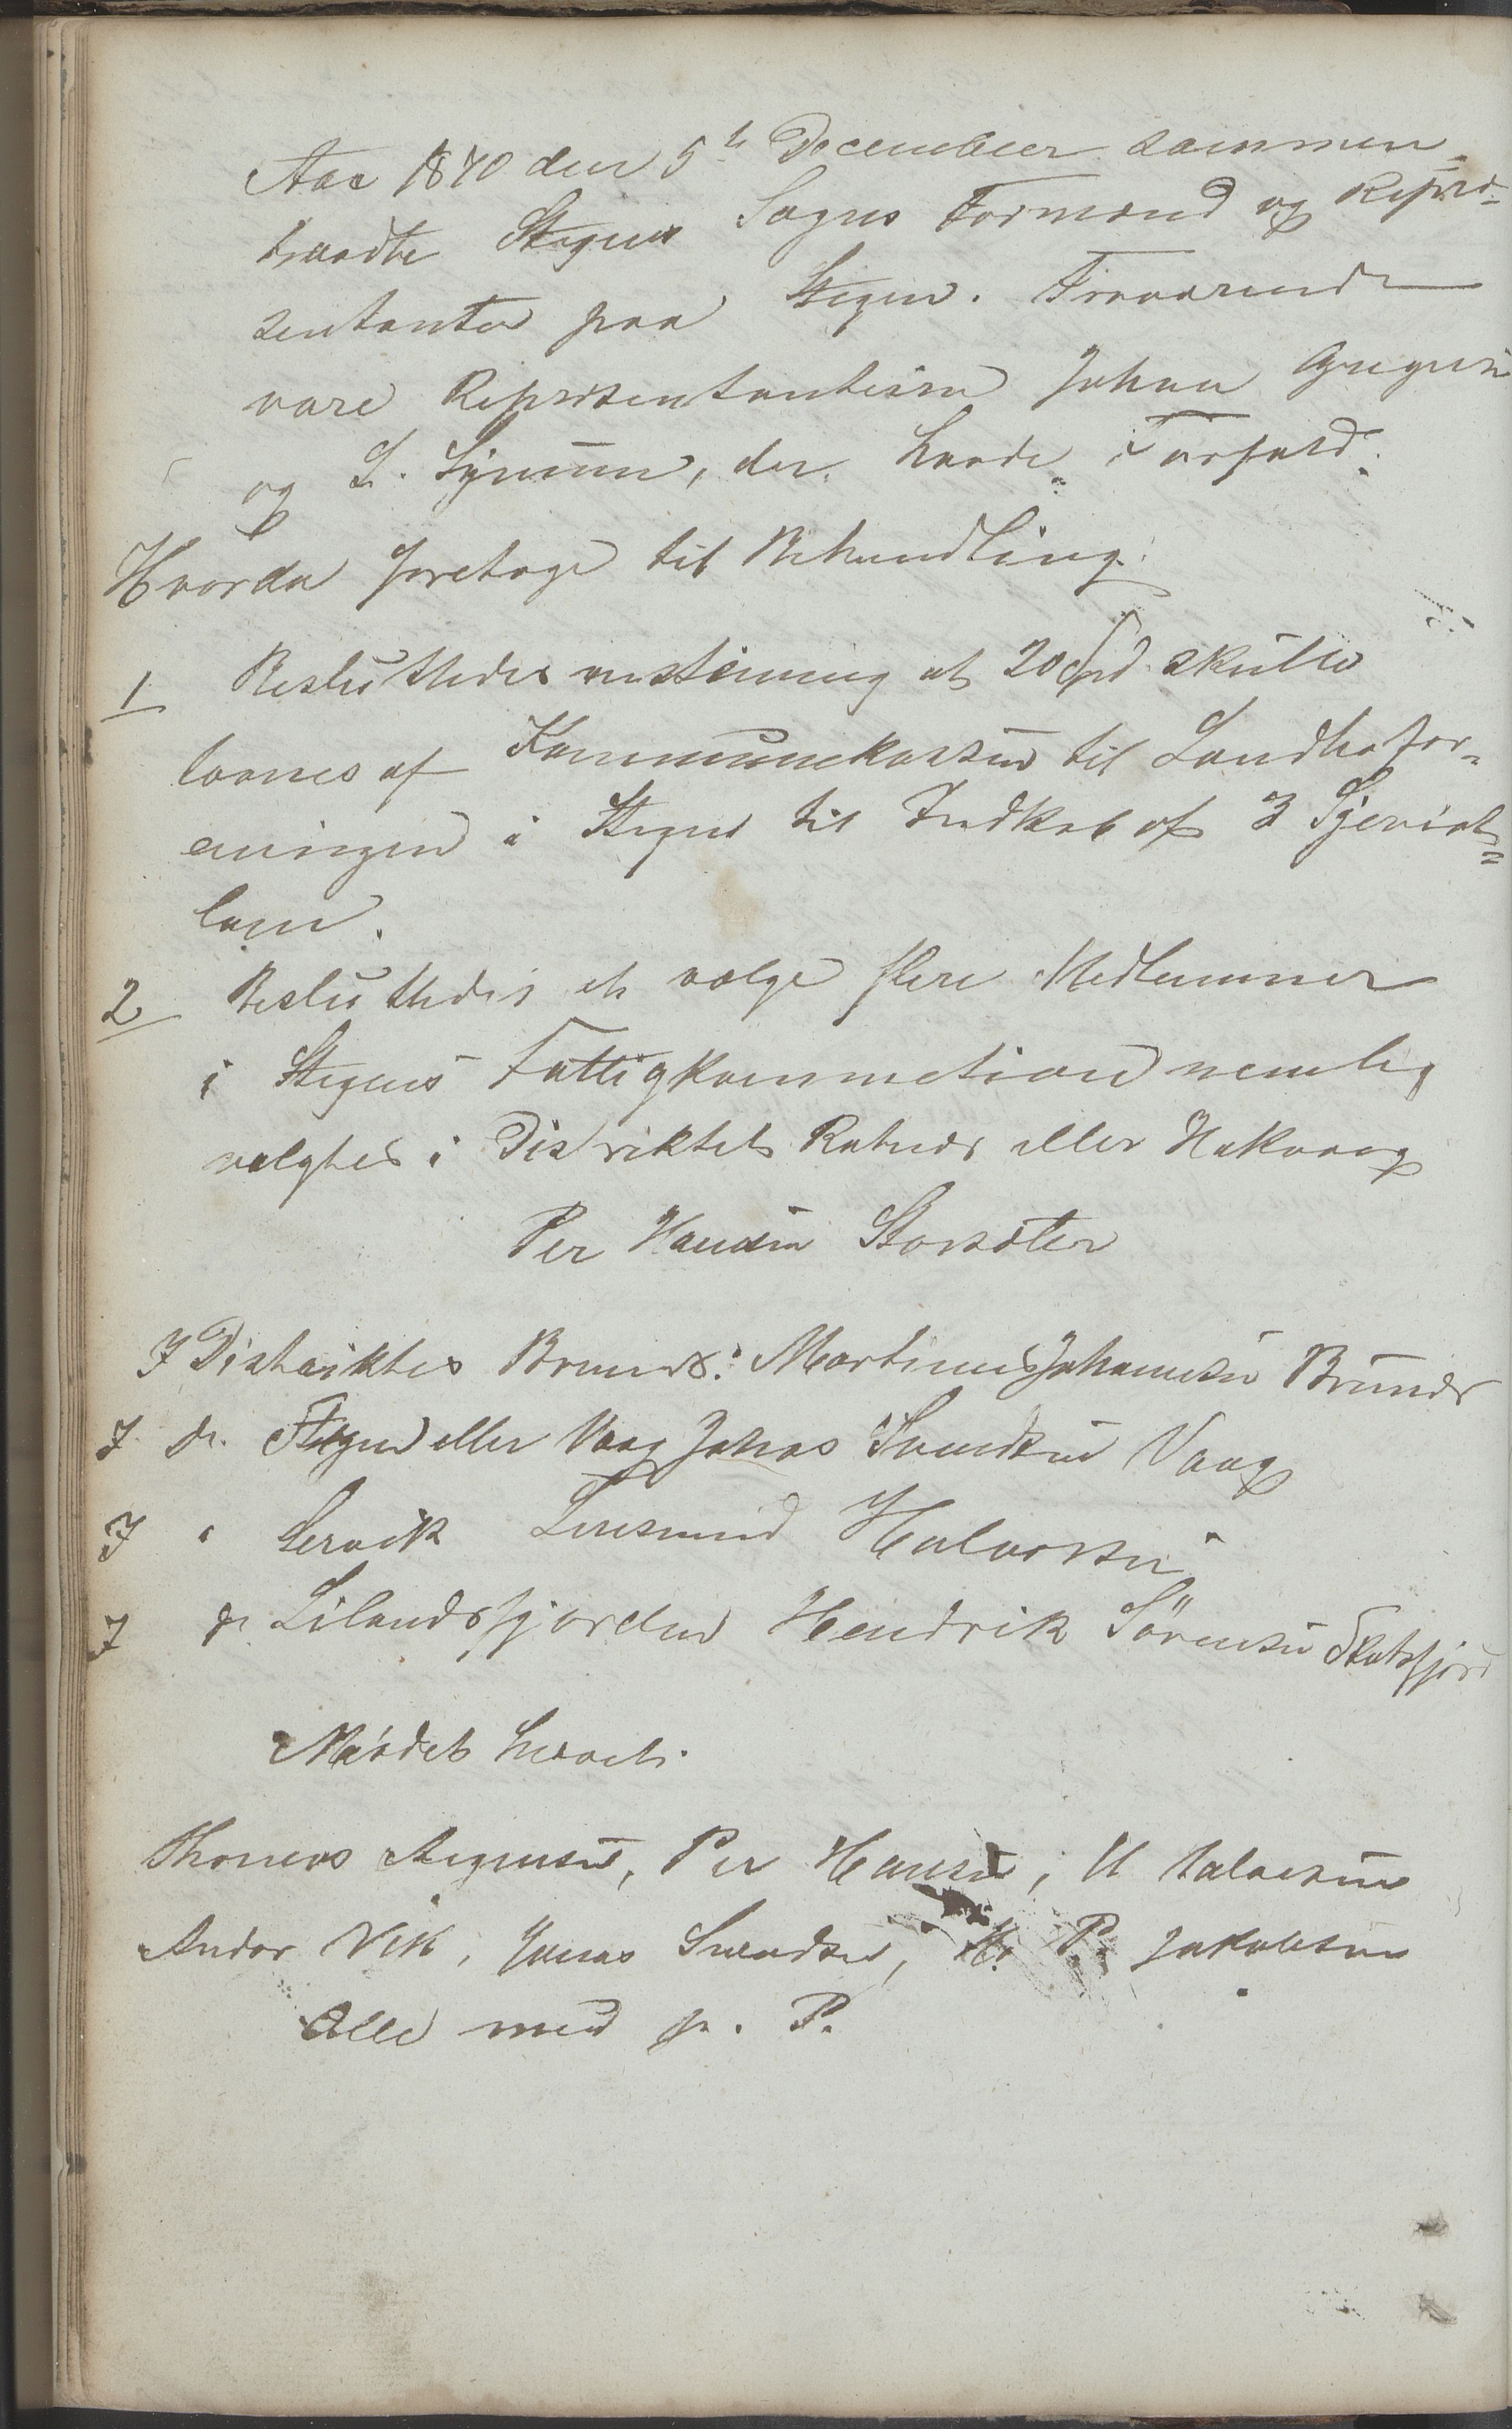 Aar 1870 den 5te December sammen-
traadte Stegens Sogns Formænd og Repræ-
sentanter paa Stegen. Fraværende
vare Repræsentanterne Johan Gregusen
og L. , der havde Forfald.
Hvorda foretoges til Behandling.
1 Besluttedes enstemmig at 20 Spd skulle
laanes af Kommunekassen til Landbofor-
eningen i Stegen til Indkjøb af 3
2 Besluttedes at vælge flere Medlemmer
i Stegens Fattigkommission nemlig
valgtes i Distriktet eller Hakvaag
Per Hansen Storsæter
I Distriktet Brunes: Martines Johannesen Brunes
I do. Stegen eller Vaag Jonas Svendsen Vaag
I " Lervik Halvorsen
I do Leilandsfjorden Hendrik Sörensen Skotsfjord
Mödet hævet.
Thomas , Per Hansen, Halvorsen
Andor Vik, Jonas Svendsen, P. Jakobsen
Alle med p. P.